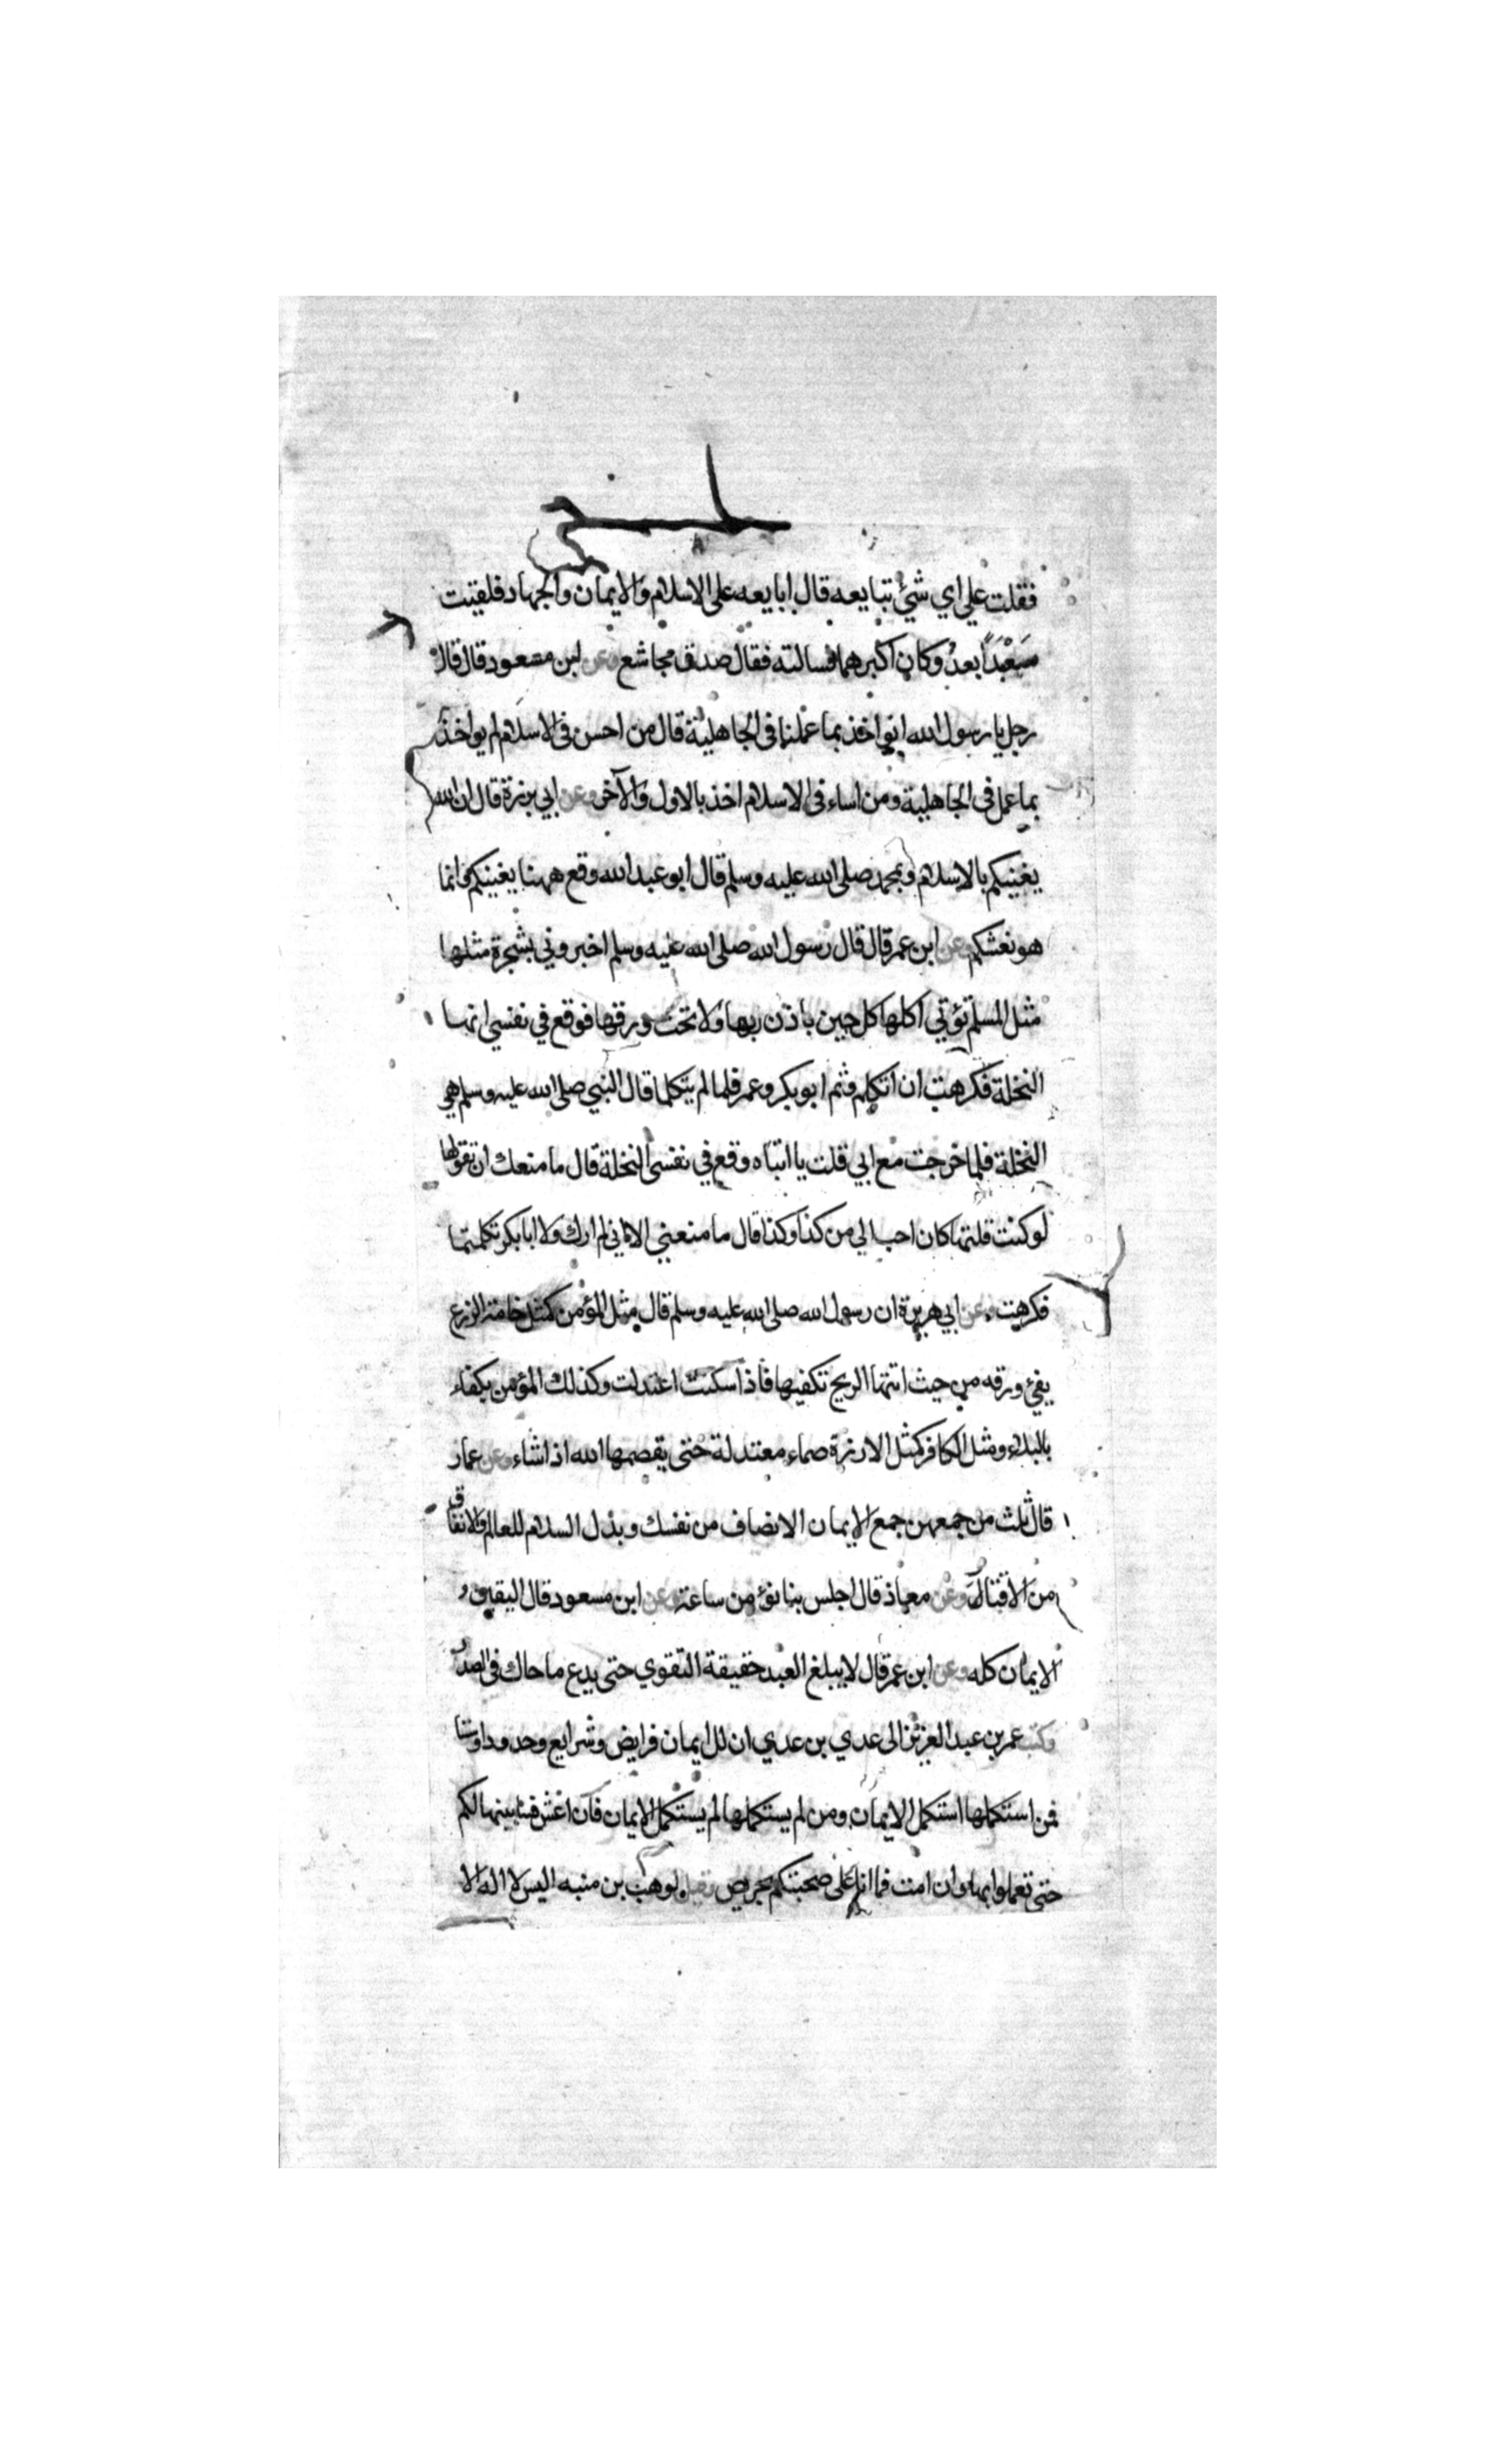 فقلت علي اي شيء تبايعه قال ابايعه على الاسلام والايمان والجهاد فلقيت
مَعْبَداً بعدُ وكان اكبرهما فسالته فقال صدق مجاشع وعن ابن مسعود قال قال
رجل يا رسول الله انواخذ بما عملنا في الجاهلية قال من احسن في الاسلام لم يواخذ
بما عمل في الجاهلية ومن اساء في الاسلام اخذ بالاول والآخر وعن ابي برزة قال ان الله
يغنيكم بالاسلام وبمحمد صلى الله عليه وسلم قال ابو عبد الله وقع ههنا يغنيكم وانما
هو نعشكم وعن ابن عمر قال قال رسول الله صلى الله عليه وسلم اخبروني بشجرة مثلها
مثل المسلم تؤتي اكلها كل حين باذن ربها ولا تحت ورقها فوقع في نفسي انها
النخلة فكرهت ان اتكلم وثم ابو بكر وعمر فلما لم يتكلما قال النبي صلى الله عليه وسلم هي
النخلة فلما خرجت مع ابي قلت يا ابتاه وقع في نفسي النخلة قال ما منعك ان تقولها
لو كنت قلتها كان احب الي من كذا وكذا قال ما منعني الا اني لم ارك ولا ابا بكر تكلمتما
فكرهت وعن ابي هريرة ان رسول الله صلى الله عليه وسلم قال مثل المؤمن كمثل خامة الزرع
يفئ ورقه من حيث اتتها الريح تكفيها فاذا سكنت اعتدلت وكذلك المؤمن يكفاء
بالبلاء ومثل الكافر كمثل الارزة صماء معتدلة حتى يقصمها الله اذا شاء وعن عمار
قال ثلث من جمعهن جمع الايمان الانصاف من نفسك وبذل السلام للعالم والانفاق
من الاقتار وعن معاذ قال اجلس بنا نؤمن ساعة وعن ابن مسعود قال اليقين
الايمان كله وعن ابن عمر قال لا يبلغ العبد حقيقة التقوي حتى يدع ما حاك في الصدر
وكتب عمر بن عبد العزيز الى عدي بن عدي ان للايمان فرايض وشرايع وحدودا وسننا
فمن استكملها استكمل الايمان ومن لم يستكملها لم يستكمل الايمان فان اعش فسابينها لكم
حتى تعملوا بها وان امت فما انا على صحبتكم بحريص وقيل لوهب بن منبه اليس لا اله الا